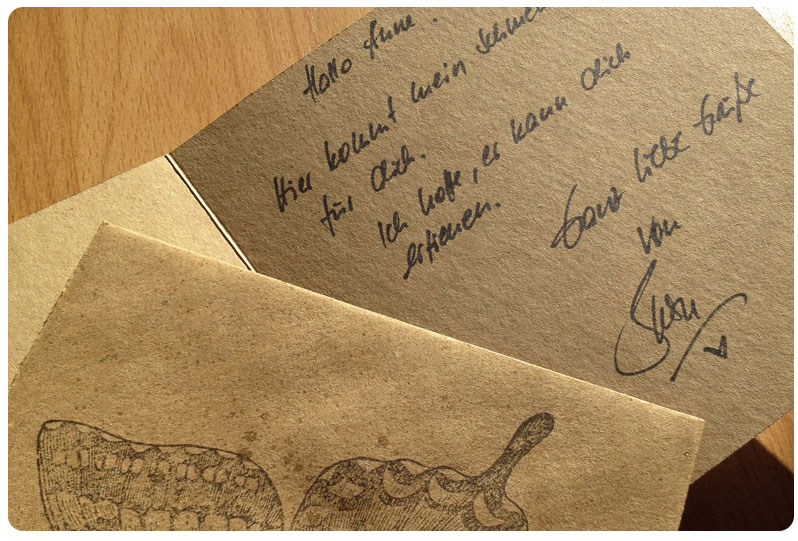 Hallo Anne.
Hier kommt mein
für dich.
Ich hoffe, er kann dich
erfreuen.
Ganz liebe Grüße
von